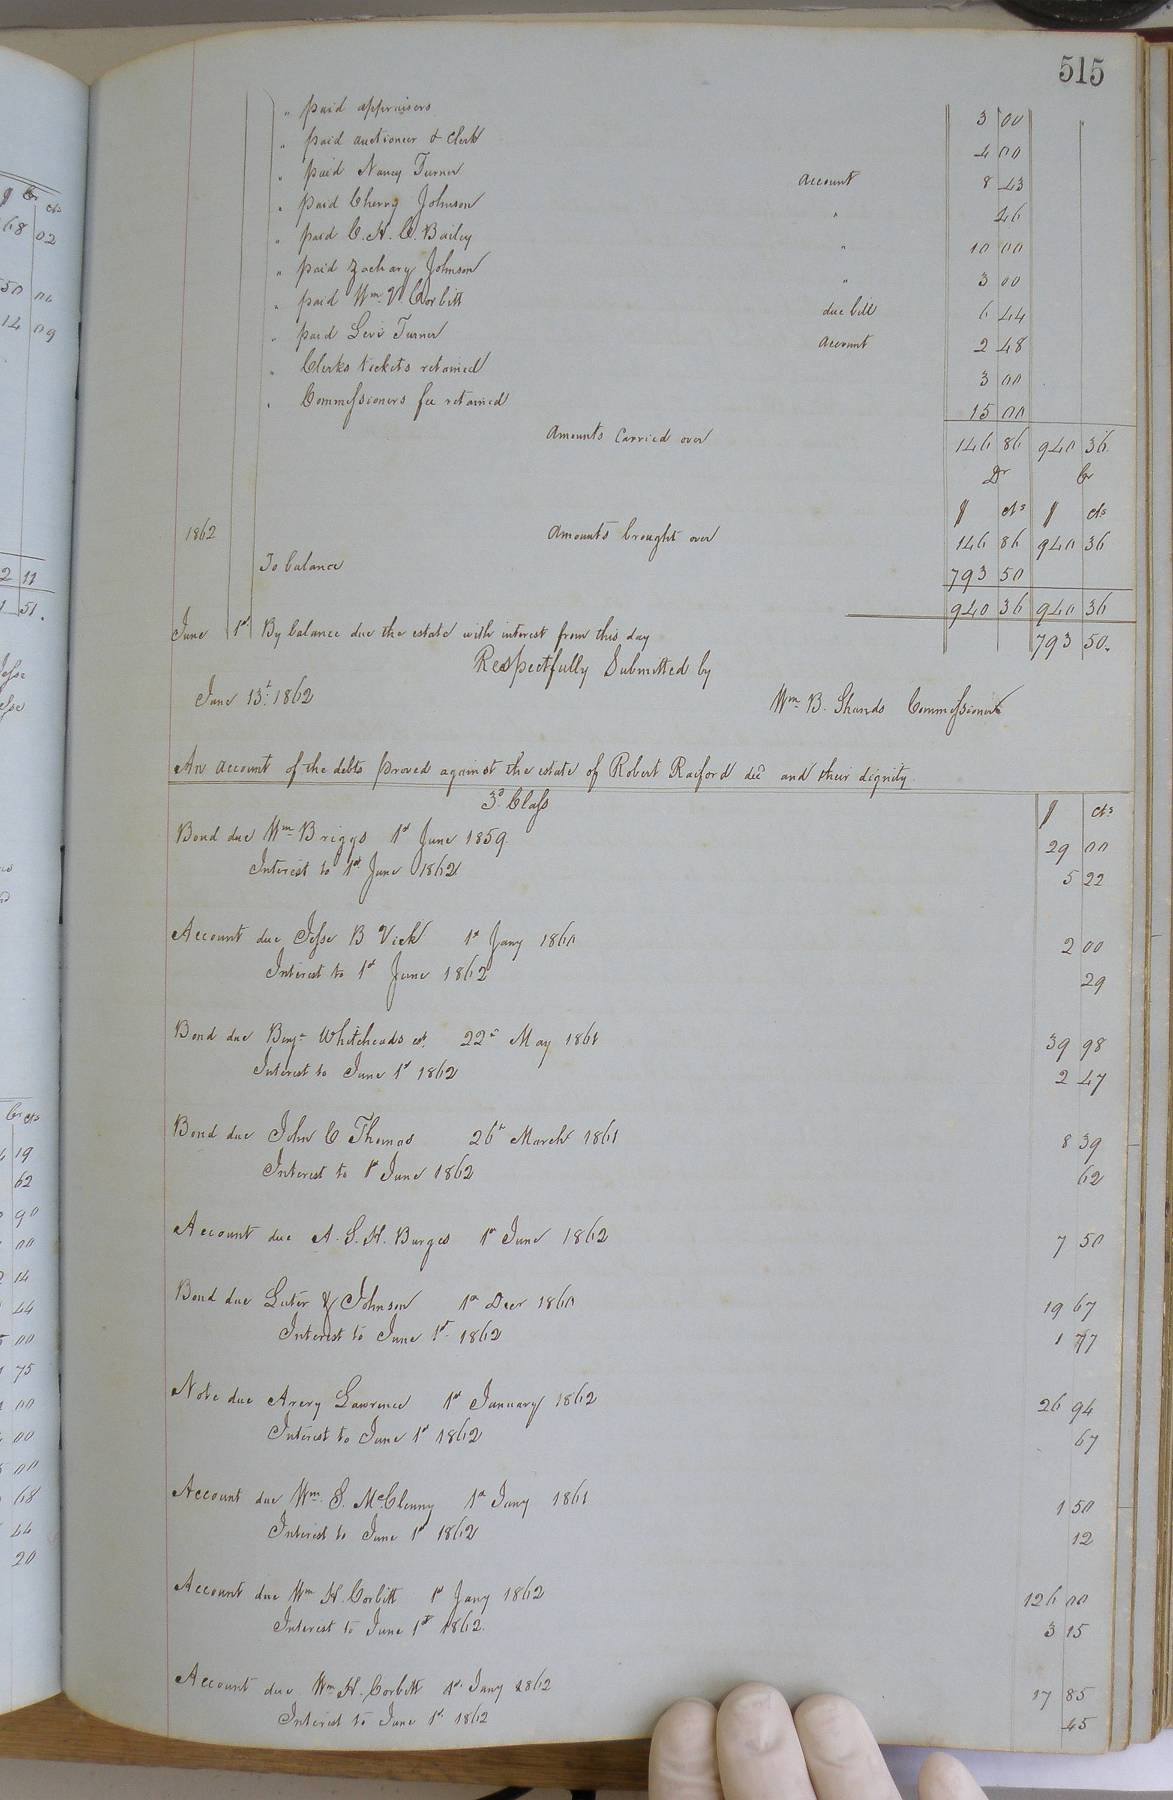 515
" paid appraisers 3 00
" paid auctioneer & Clerk 4 00
" paid Nancy Turner Account 8 43
" paid Cherry Johnson " 46
" paid C. H. C. Bailey " 10 00
" paid Zachary Johnson " 3 00
" paid Wm. V Corbitt due bill 6 44
" paid Levi Turner Account 2 48
" Clerks tickets retained 3 00
" Commissioners fee retained 15 00
Amounts Carried over 146 86 940 36
Dr Cr
$ cts $ cts
1862 Amounts brought over 146 86 940 36
To balance 793 50
940 36 940 36
June 1st By balance due the estate with interest from this day 793 50
Respectfully Submitted by
June 13t. 1862 Wm. B. Shands Commissioner
An account of the debts proved against the estate of Robert Raiford decd and their dignity
3d Class $ cts
Bond due Wm Briggs 1st June 1859 29 00
Interest to 1st June 1862 5 22
Account due Jesse B Vick 1st Jany 1860 2 00
Interest to 1st June 1862 29
Bond due Benjn Whiteheads est. 22d May 1861 39 98
Interest to June 1st 1862 2 47
Bond due John C Thomas 26t March 1861 8 39
Interest to 1st June 1862 62
Account due A. S. H. Burges 1st June 1862 7 50
Bond due Luter & Johnson 1st Decr 1860 19 67
Interest to June 1st 1862 1 77
Note due Avery Lawrence 1st January 1862 26 94
Interest to June 1st 1862 67
Account due Wm. S. McClenny 1st Jany 1861 1 50
Interest to June 1st 1862 12
Account due Wm H. Corbitt 1st Jany 1862 126 00
Interest to June 1st 1862. 3 15
Account due Wm H. Corbitt 1st Jany 1862 17 85
Interest to June 1st 1862 45